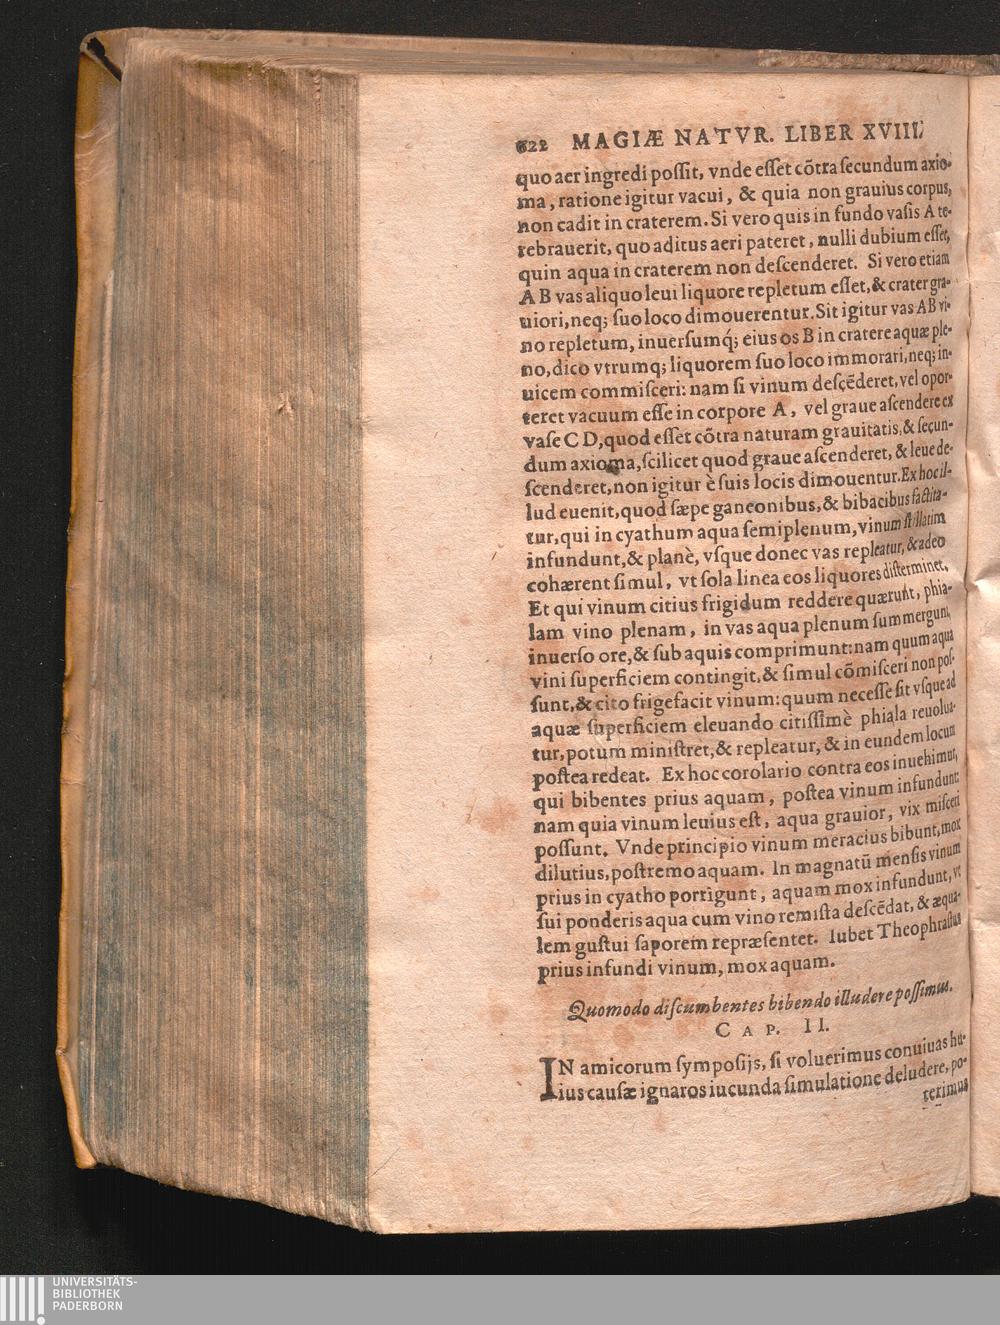 622 MAGIÆ NATVR. LIBER XVIII.
quo aer ingredi poſſit, vnde eſſet cõtra ſecundum axio-
ma, ratione igitur vacui, & quia non grauius corpus,
non cadit in craterem. Si vero quis in fundo vaſis A te-
rebrauerit, quo aditus aeri pateret, nulli dubium eſſet,
quin aqua in craterem non deſcenderet. Si vero etiam
A B vas aliquo leui liquore repletum eſſet, & crater gra-
uiori, neq; ſuo loco dimouerentur. Sit igitur vas AB vi-
no repletum, inuerſumq́; eius os B in cratere aquæ ple-
no, dico vtrumq; liquorem ſuo loco immorari, neq; in-
uicem commiſceri: nam ſi vinum deſcẽderet, vel opor-
teret vacuum eſſe in corpore A, vel graue aſcendere ex
vaſe C D, quod eſſet cõtra naturam grauitatis, & ſecun-
dum axioma, ſcilicet quod graue aſcenderet, & leue de-
ſcenderet, non igitur è ſuis locis dimouentur. Ex hoc il-
lud euenit, quod ſæpe ganeonibus, & bibacibus factita-
tur, qui in cyathum aqua ſemiplenum, vinum ſtillatim
infundunt, & planè, vſque donec vas repleatur, & adeo
cohærent ſimul, vt ſola linea eos liquores diſterminet.
Et qui vinum citius frigidum reddere quærunt, phia-
lam vino plenam, in vas aqua plenum ſummergunt,
inuerſo ore, & ſub aquis comprimunt: nam quum aqua
vini ſuperficiem contingit, & ſimul cõmiſceri non poſ-
ſunt, & cito frigefacit vinum: quum neceſſe ſit vſque ad
aquæ ſuperficiem eleuando citiſſimè phiala reuolua-
tur, potum miniſtret, & repleatur, & in eundem locum
poſtea redeat. Ex hoc corolario contra eos inuehimur,
qui bibentes prius aquam, poſtea vinum infundunt:
nam quia vinum leuius eſt, aqua grauior, vix miſceri
poſſunt. Vnde principio vinum meracius bibunt, mox
dilutius, poſtremo aquam. In magnatũ menſis vinum
prius in cyatho porrigunt, aquam mox infundunt, vt
ſui ponderis aqua cum vino remiſta deſcẽdat, & æqua-
lem guſtui ſaporem repræſentet. Iubet Theophraſtus
prius infundi vinum, mox aquam.
Quomodo diſcumbentes bibendo illudere poſſimus.
CAP. II.
IN amicorum ſympoſijs, ſi voluerimus conuiuas hu-
ius cauſæ ignaros iucunda ſimulatione deludere, po-
terimus
UNIVERSITÄTS-
BIBLIOTHEK
PADERBORN